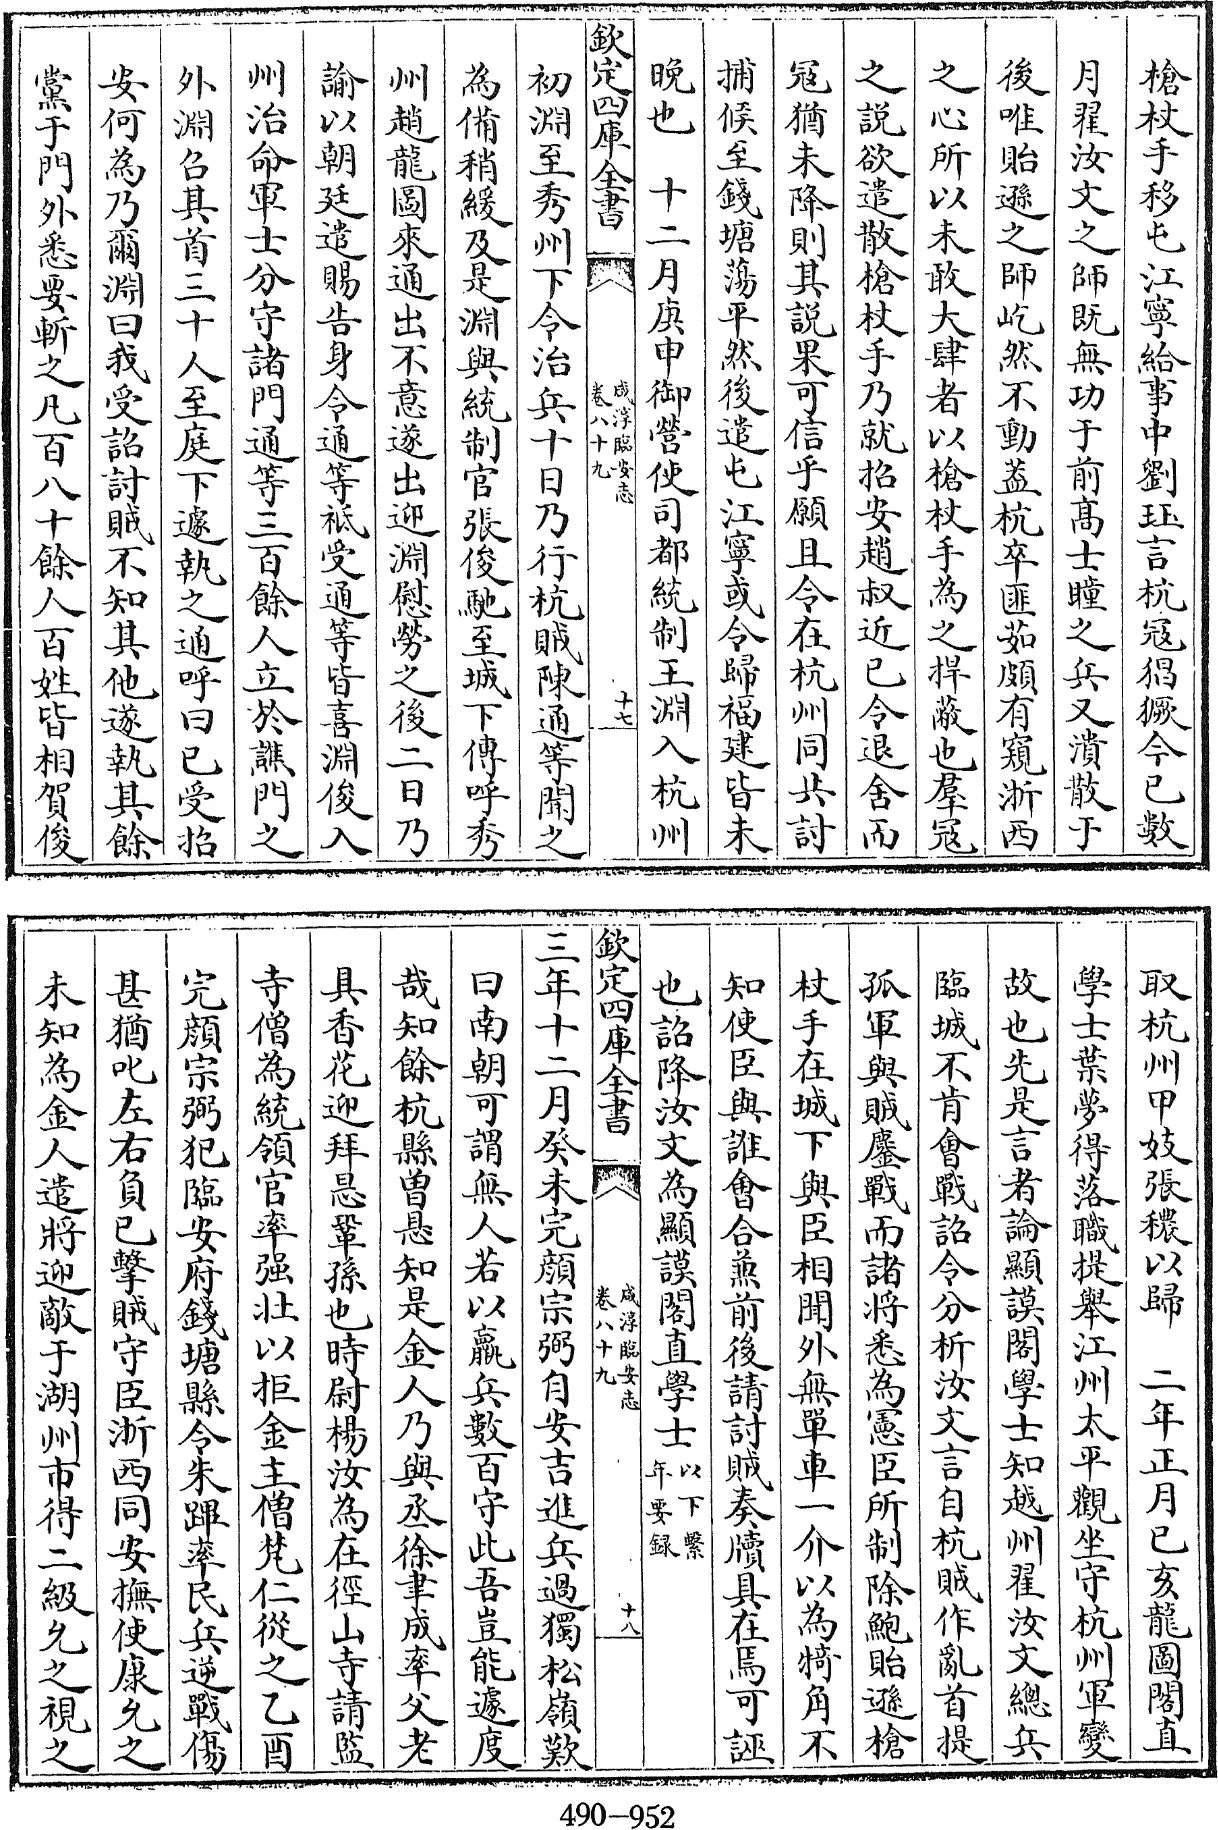 槍杖手移屯江寧給事中劉珏言杭冦猖獗今已數
月翟汝文之師既無功于前髙士瞳之兵又潰散于
後唯貽遜之師屹然不動葢杭卒匪茹頗有窺浙西
之心所以未敢大肆者以槍杖手為之捍蔽也羣冦
之説欲遣散槍杖手乃就招安趙叔近已令退舍而
冦猶未降則其説果可信乎願且令在杭州同共討
捕候至錢塘蕩平然後遣屯江寧或令歸福建皆未
晚也　十二月庚申御營使司都統制王淵入杭州
欽定四庫全書
咸淳臨安志
卷八十九
十七
初淵至秀州下令治兵十日乃行杭賊陳通等聞之
為備稍緩及是淵與統制官張俊馳至城下傳呼秀
州趙龍圖來通出不意遂出迎淵慰勞之後二日乃
諭以朝廷遣賜告身令通等祗受通等皆喜淵俊入
州治命軍士分守諸門通等三百餘人立於譙門之
外淵召其首三十人至庭下遽執之通呼曰已受招
安何為乃爾淵曰我受詔討賊不知其他遂執其餘
黨于門外悉要斬之凡百八十餘人百姓皆相賀俊
取杭州甲妓張穠以歸　二年正月己亥龍圖閣直
學士葉夢得落職提舉江州太平觀坐守杭州軍變
故也先是言者論顯謨閣學士知越州翟汝文總兵
臨城不肯會戰詔令分析汝文言自杭賊作亂首提
孤軍與賊鏖戰而諸將悉為憲臣所制除鮑貽遜槍
杖手在城下與臣相聞外無單車一介以為犄角不
知使臣與誰會合兼前後請討賊奏牘具在焉可誣
也詔降汝文為顯謨閣直學士以下繫
年要録
欽定四庫全書
咸淳臨安志
卷八十九
十八
三年十二月癸未完顔宗弼自安吉進兵過獨松嶺歎
曰南朝可謂無人若以羸兵數百守此吾豈能遽度
哉知餘杭縣曾㫷知是金人乃與丞徐聿成率父老
具香花迎拜㫷鞏孫也時尉楊汝為在徑山寺請監
寺僧為統領官率强壮以拒金主僧梵仁從之乙酉
完顔宗弼犯臨安府錢塘縣令朱蹕率民兵逆戰傷
甚猶叱左右負已擊賊守臣浙西同安撫使康允之
未知為金人遣將迎敵于湖州市得二級允之視之
490-952